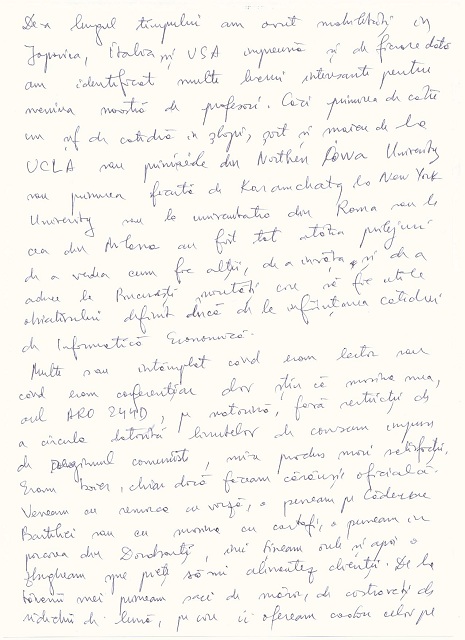 De-a lungul timpului am avut mobilități în
Japonia, Italia și USA împreună și de fiecare dată
am identificat multe lucruri interesante pentru
menirea noastră de profesori. Căci primirea de către
un șef de catedră în șlapi, șort și maieu de la
UCLA sau primirile din Northen Iowa University
sau primirea făcută de Karamchaty la New York
University sau la universitatea din Roma sau la
cea din Atena au fost tot atâtea prilejuri
de a vedea cum fac alții, de a învăța și de a
aduce la București noutăți care să fie utile
obiectivului definit încă de la înființarea catedrei
de Informatică Economică.
Multe s-au întâmplat când eram lector sau
când eram conferențiar dar știu că mașina mea,
cu ARO 244D, pe motorină, fără restricții de
a circula datorită limitelor de consum impuse
de regimul comunist, mi-a produs mari satisfacții.
Eram boier, chiar dacă făceam cărăușie oficială.
Veneam cu remorca cu varză, o puneam pe
Bariției sau cu mașina cu cartofi, o puneam în
parcarea din Dorobanți, îmi țineam orele și apoi o
ștergeam spre piață să-mi alimentez clienții. De la
țăranii mei puneam saci de mere, de castraveți, de
ridichi de lună, pe care îi ofeream cadou celor pe